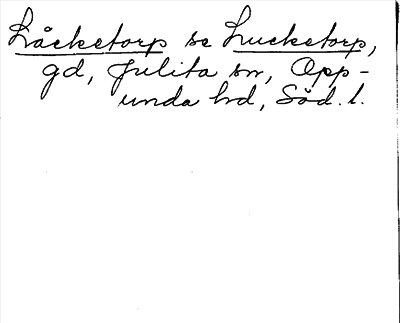 Låcketorp se Lucketorp,
gd, Julita sn, Opp-
unda hd, Söd. l.